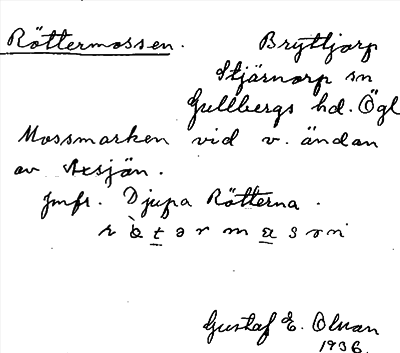 Röttermossen. Bryttjorp
Stjärnorp sn
Gullbergs hd. Ögl
Mossmarken vid v. ändan
av Axsjön.
Jmfr. Djupa Rötterna.
Gustaf E. Olsson
1936.